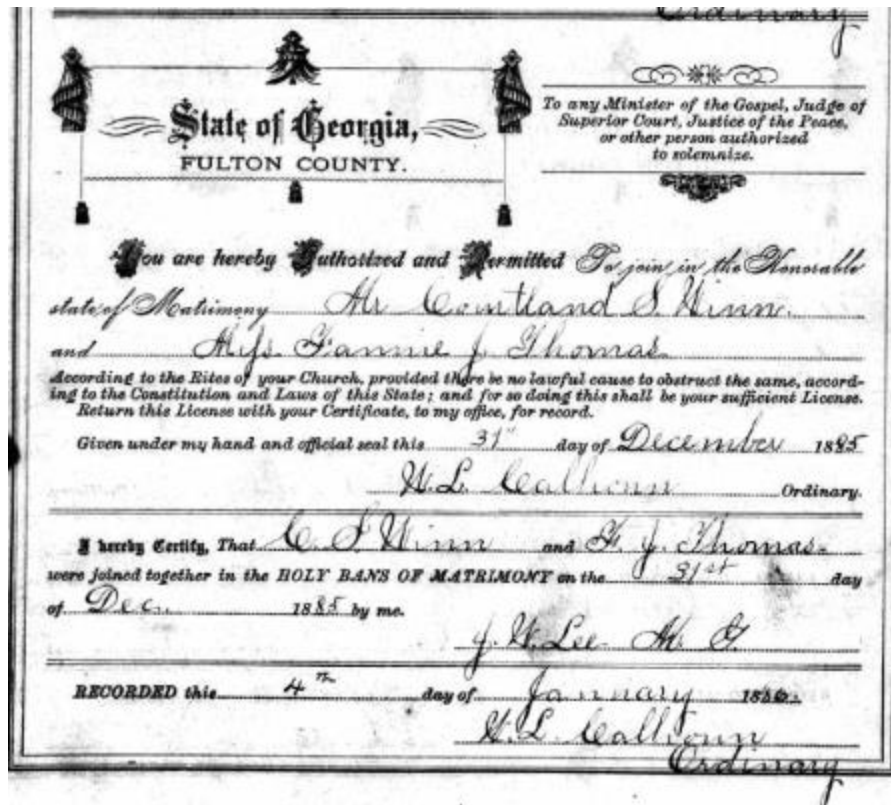 Ordinary
State of Georgia,
FULTON COUNTY.
To any Minister of the Gospel, Judge of
Superior Court, Justice of the Peace,
or other person authorized
to solemnize.
You are hereby Authorized and Permitted To join in the Honorable
state of Matrimony Mr Courtland S. Winn.
and Miss Fannie J. Thomas
According to the Rites of your Church, provided there be no lawful cause to obstruct the same, accord-
ing to the Constitution and Laws of this State; and for so doing this shall be your sufficient License.
Return this License with your Certificate, to my office, for record.
Given under my hand and official seal this 31st day of December 1885
W. L. Calhoun Ordinary.
I hereby Certify, That C. S. Winn and F. J. Thomas
were joined together in the HOLY BANS OF MATRIMONY on the 31st day
of Dec. 1885 by me.
J. W. Lee M. G.
RECORDED this 4th day of January 1886.
W. L. Calhoun
Ordinary